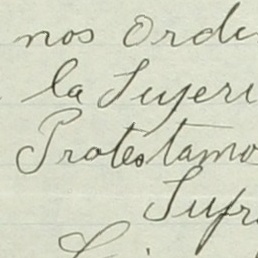 nos orde
la Sujeri
Protestamo
Sufr